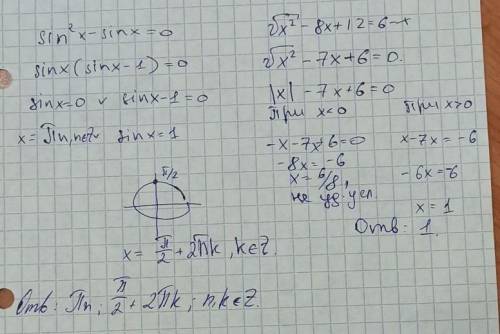 sin²x - sinx = 0
sinx(sinx-1) = 0
sinx=0 v sinx-1=0
x=πn, n∈Z v sinx=1
π/2
x = π/2 + 2πk, k∈Z.
Отв: πn; π/2 + 2πk; n,k∈Z.
√x² - 8x+12=6-x
√x² - 7x+6=0.
|x| - 7x+6=0
При x<0
-x-7x+6=0
-8x=-6
x=6/8,
не уд. усл.
при x>0
x-7x=-6
-6x=-6
x=1
Отв: 1.